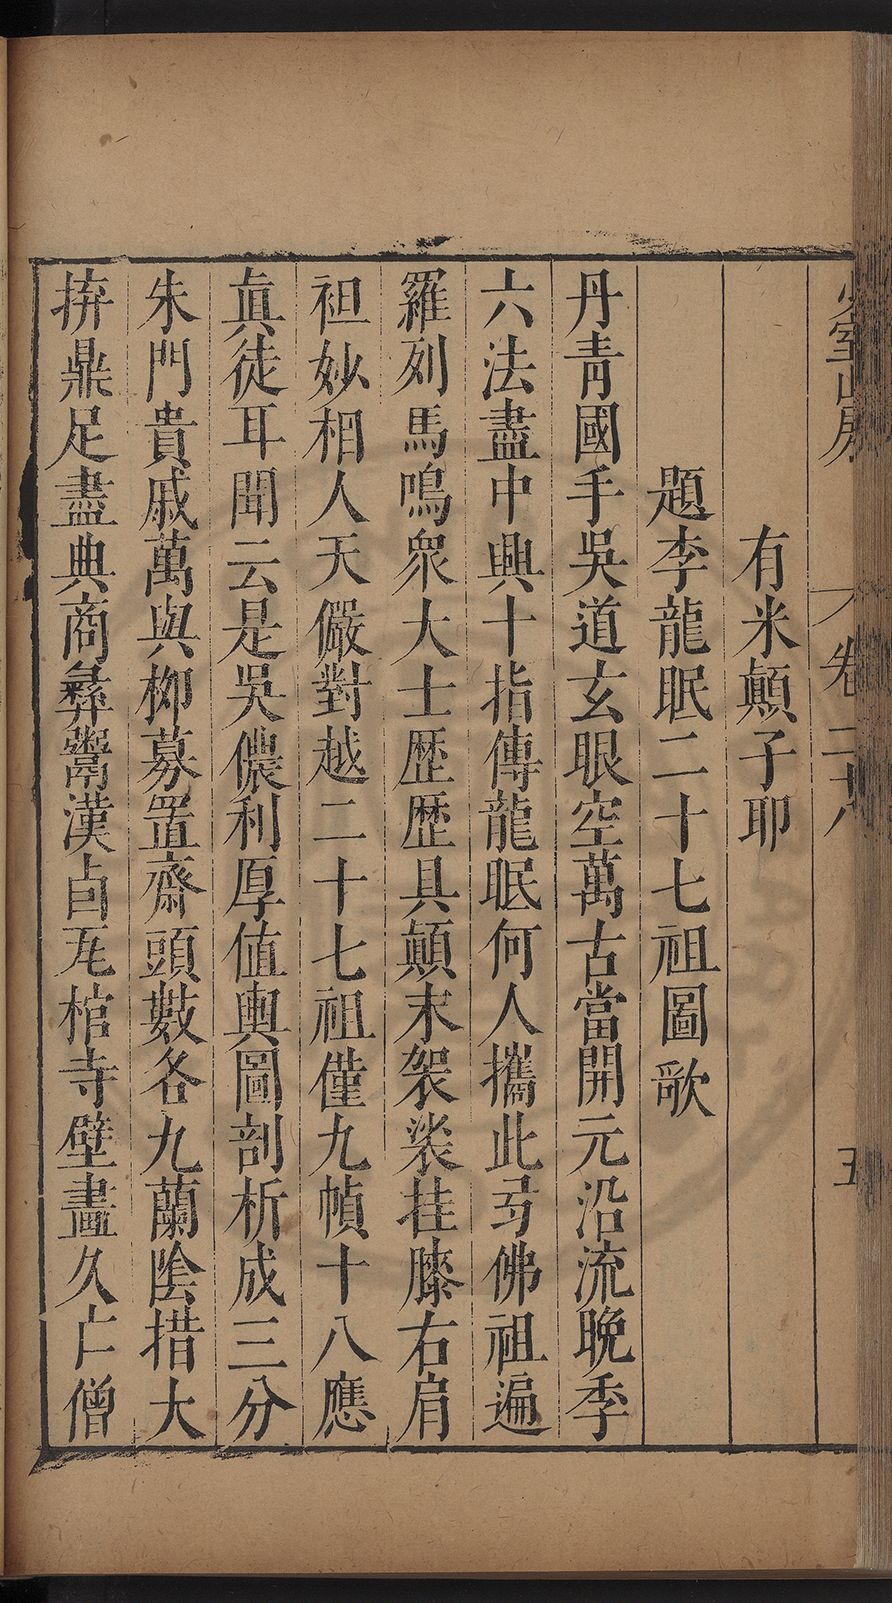 少室山房 卷二十八 五
有米顛子耶
題李龍眠二十七祖圖歌
丹青國手吳道玄眼空萬古當開元沿流晚季
六法盡中興十指傳龍眠何人攜此弓佛祖遍
羅列馬鳴衆大士歷歷具顛末袈裟挂膝右肩
袒妙相人天儼對越二十七祖僅九幀十八應
眞徒耳聞云是吳儂利厚值輿圖剖析成三分
朱門貴戚萬與柳募置齋頭數各九蘭陰措大
拚鼎足盡典商彝鬻漢卣瓦棺寺壁畫久亡僧